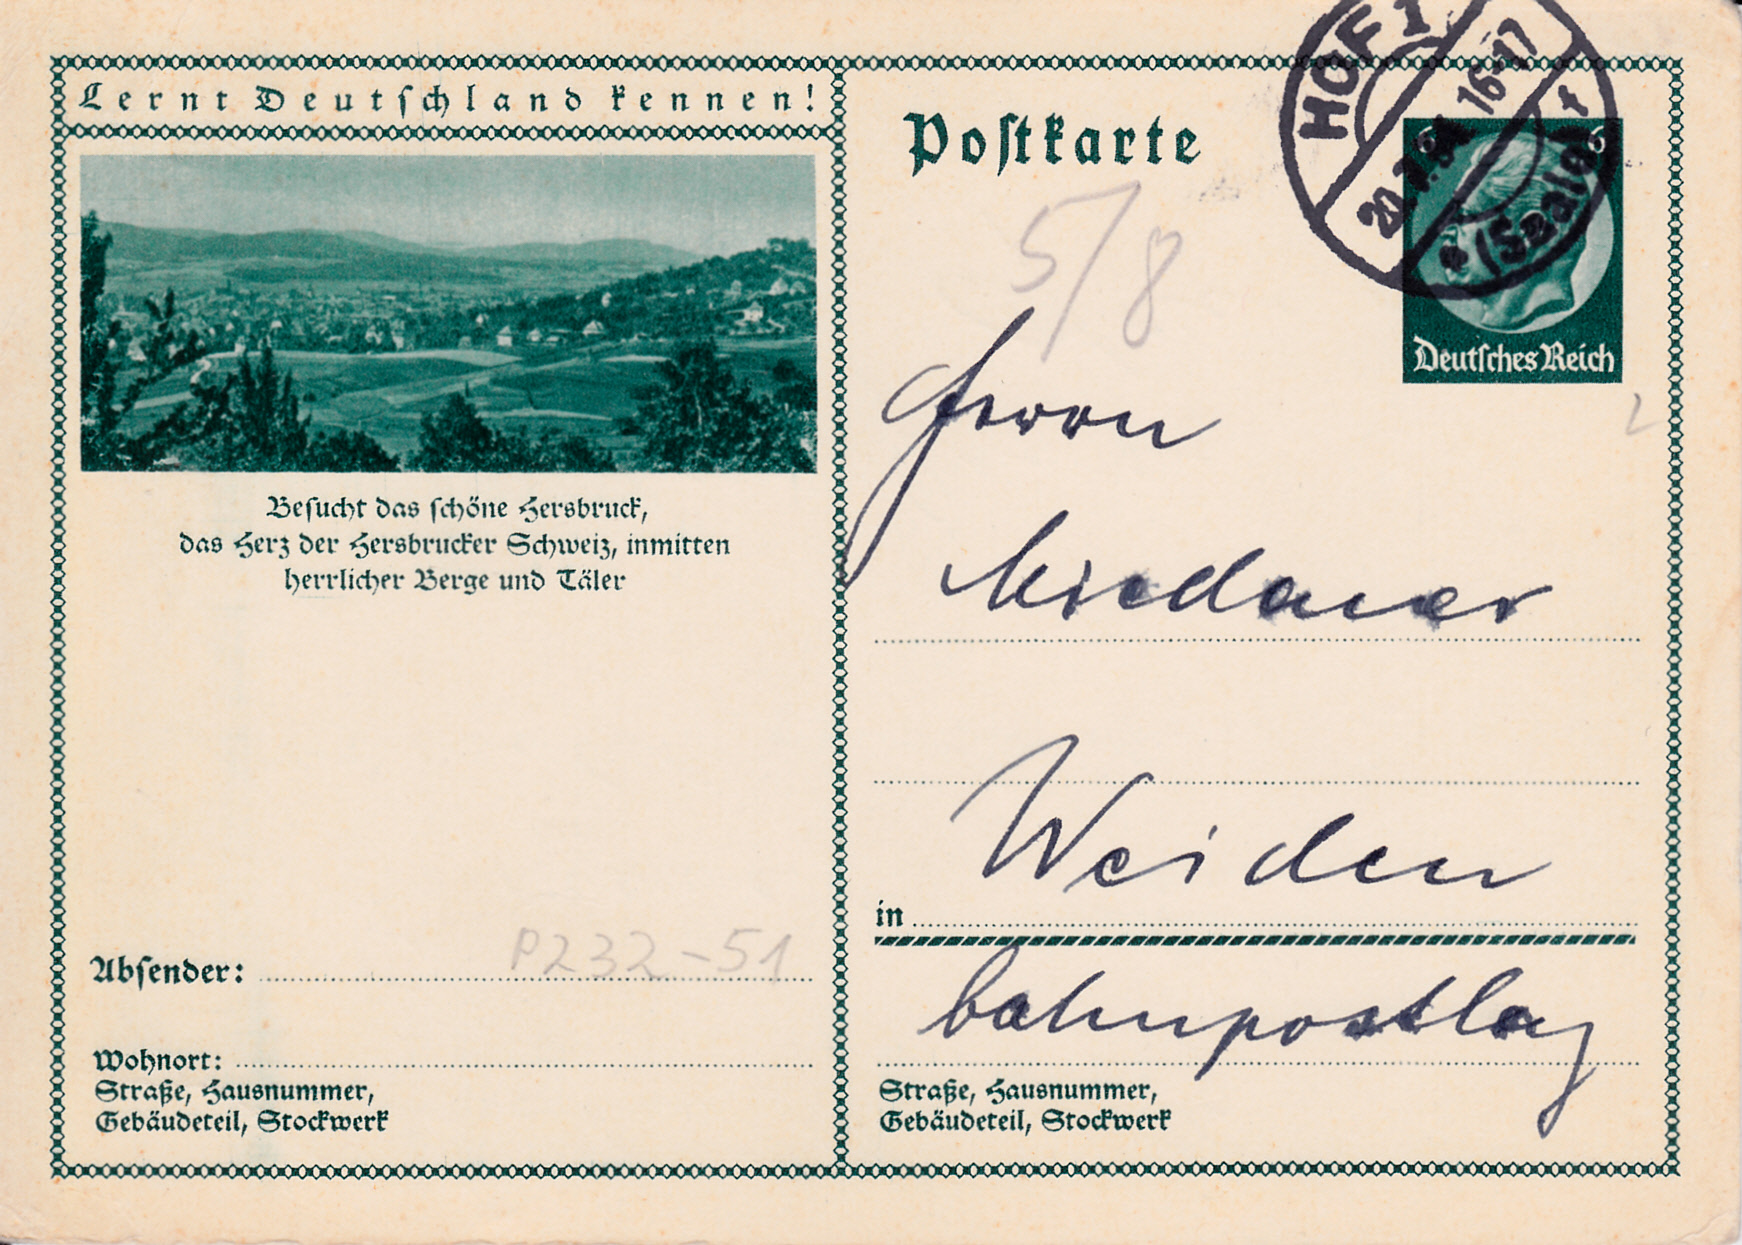 Lernt Deutschland kennen!
Besucht das schöne Hersbruck,
das Herz der Hersbrucker Schweiz, inmitten
herrlicher Berge und Täler
P232-51
Absender:
Wohnort:
Straße, Hausnummer,
Gebäudeteil, Stockwerk
Postkarte
HOF 1
16-17
(Saale)
6 6
Deutsches Reich
5/8
Herrn
Weiden
in
bahnpostlag
Straße, Hausnummer,
Gebäudeteil, Stockwerk